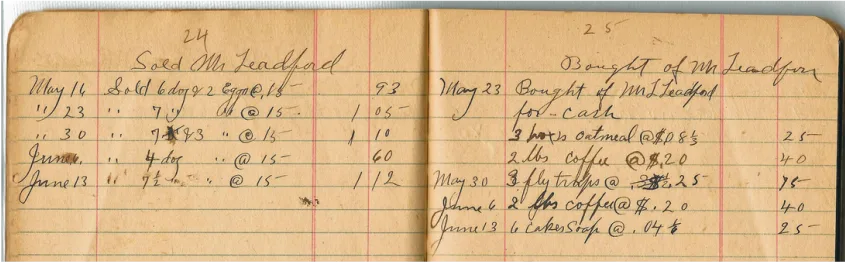 24
Sold Mr Leadford
May 16 Sold 6 dog & 2 Eggs @ 15 93
" 23 " 7 " " @ 15 1 05
" 30 " 7 & 3 " @ 15 1 10
June 6 " 4 dog " @ 15 60
June 13 " 7½ " " @ 15 1 12
25
Bought of Mr Leadford
May 23 Bought of Mr Leadford
for cash
3 boxes oatmeal @ $.08⅓ 25
2 lbs coffee @ $.20 40
May 30 3 fly traps @ .25 75
June 6 2 lbs coffee @ $.20 40
June 13 6 cakes Soap @ .04⅙ 25